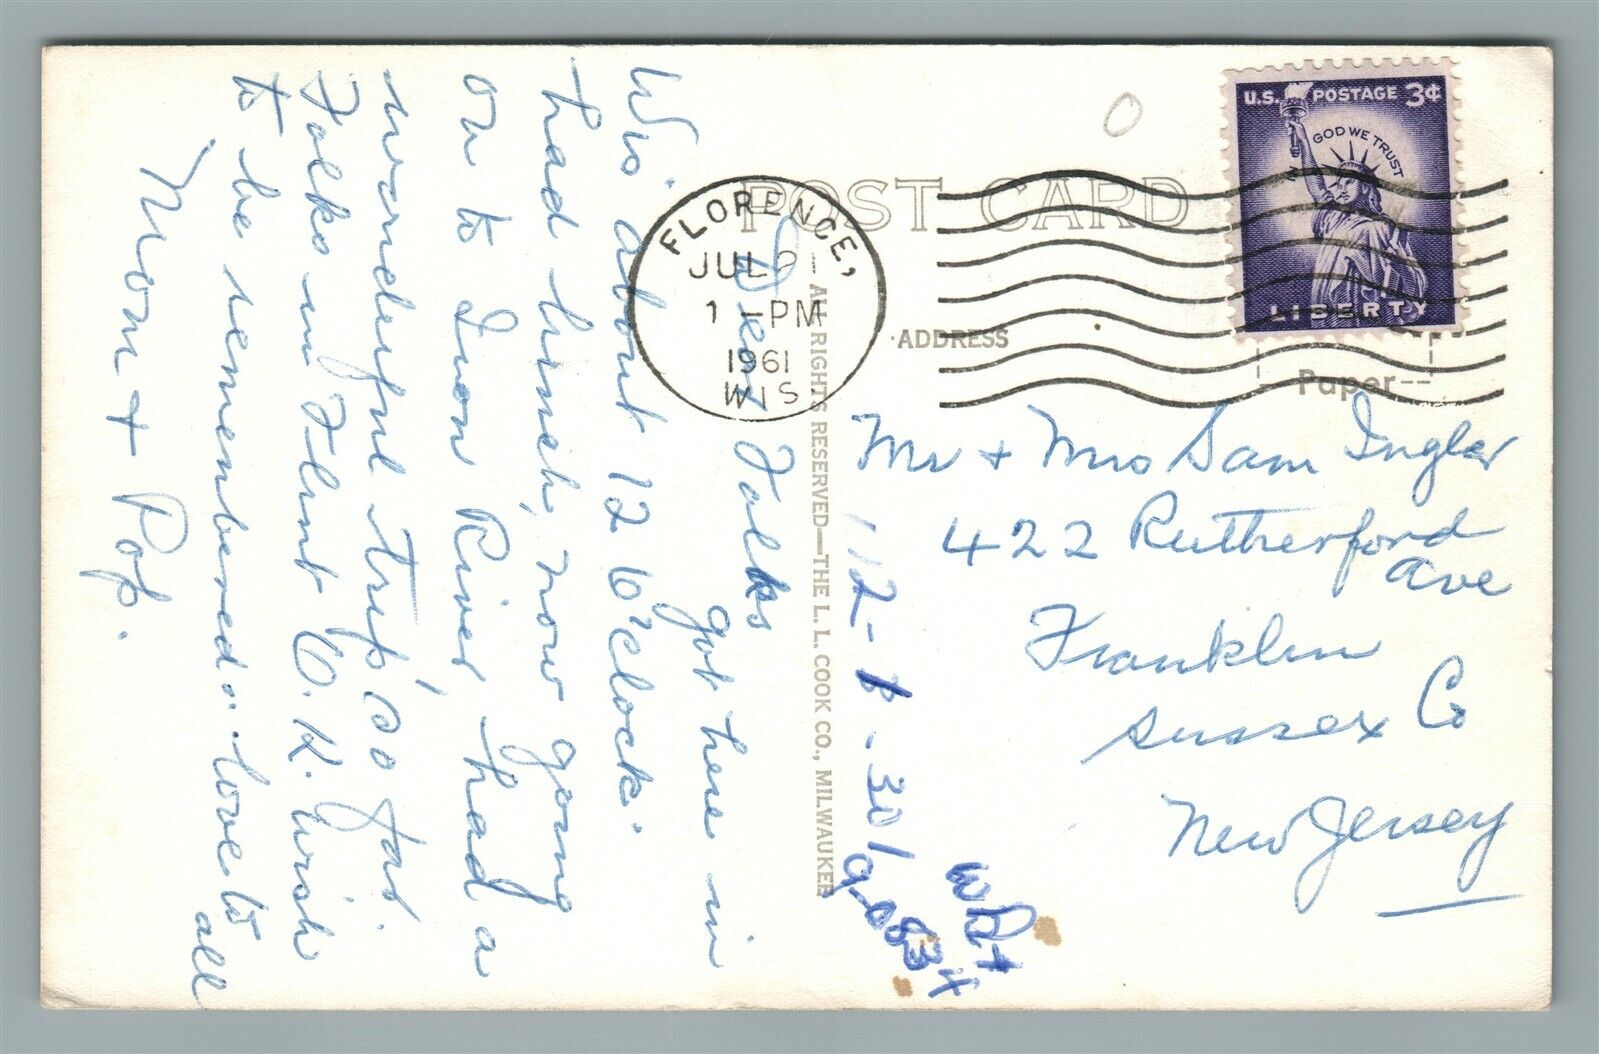 Dear Folks
got here in
Wis about 12 O'clock.
Had lunch, now going
on to Iron River, had a
wonderful trip so far.
Folks in Flint O.K. wish
to be remembered. love to
all
Mom + Pop.
POST CARD
FLORENCE,
JUL 21
1 -PM
1961
WIS
U.S. POSTAGE 3¢
IN GOD WE TRUST
LIBERTY
ADDRESS
Paper
ALL RIGHTS RESERVED—THE L. L. COOK CO., MILWAUKEE
Mr + Mrs Sam Inglar
422 Rutherford
Ave
Franklin
Sussex Co
New Jersey